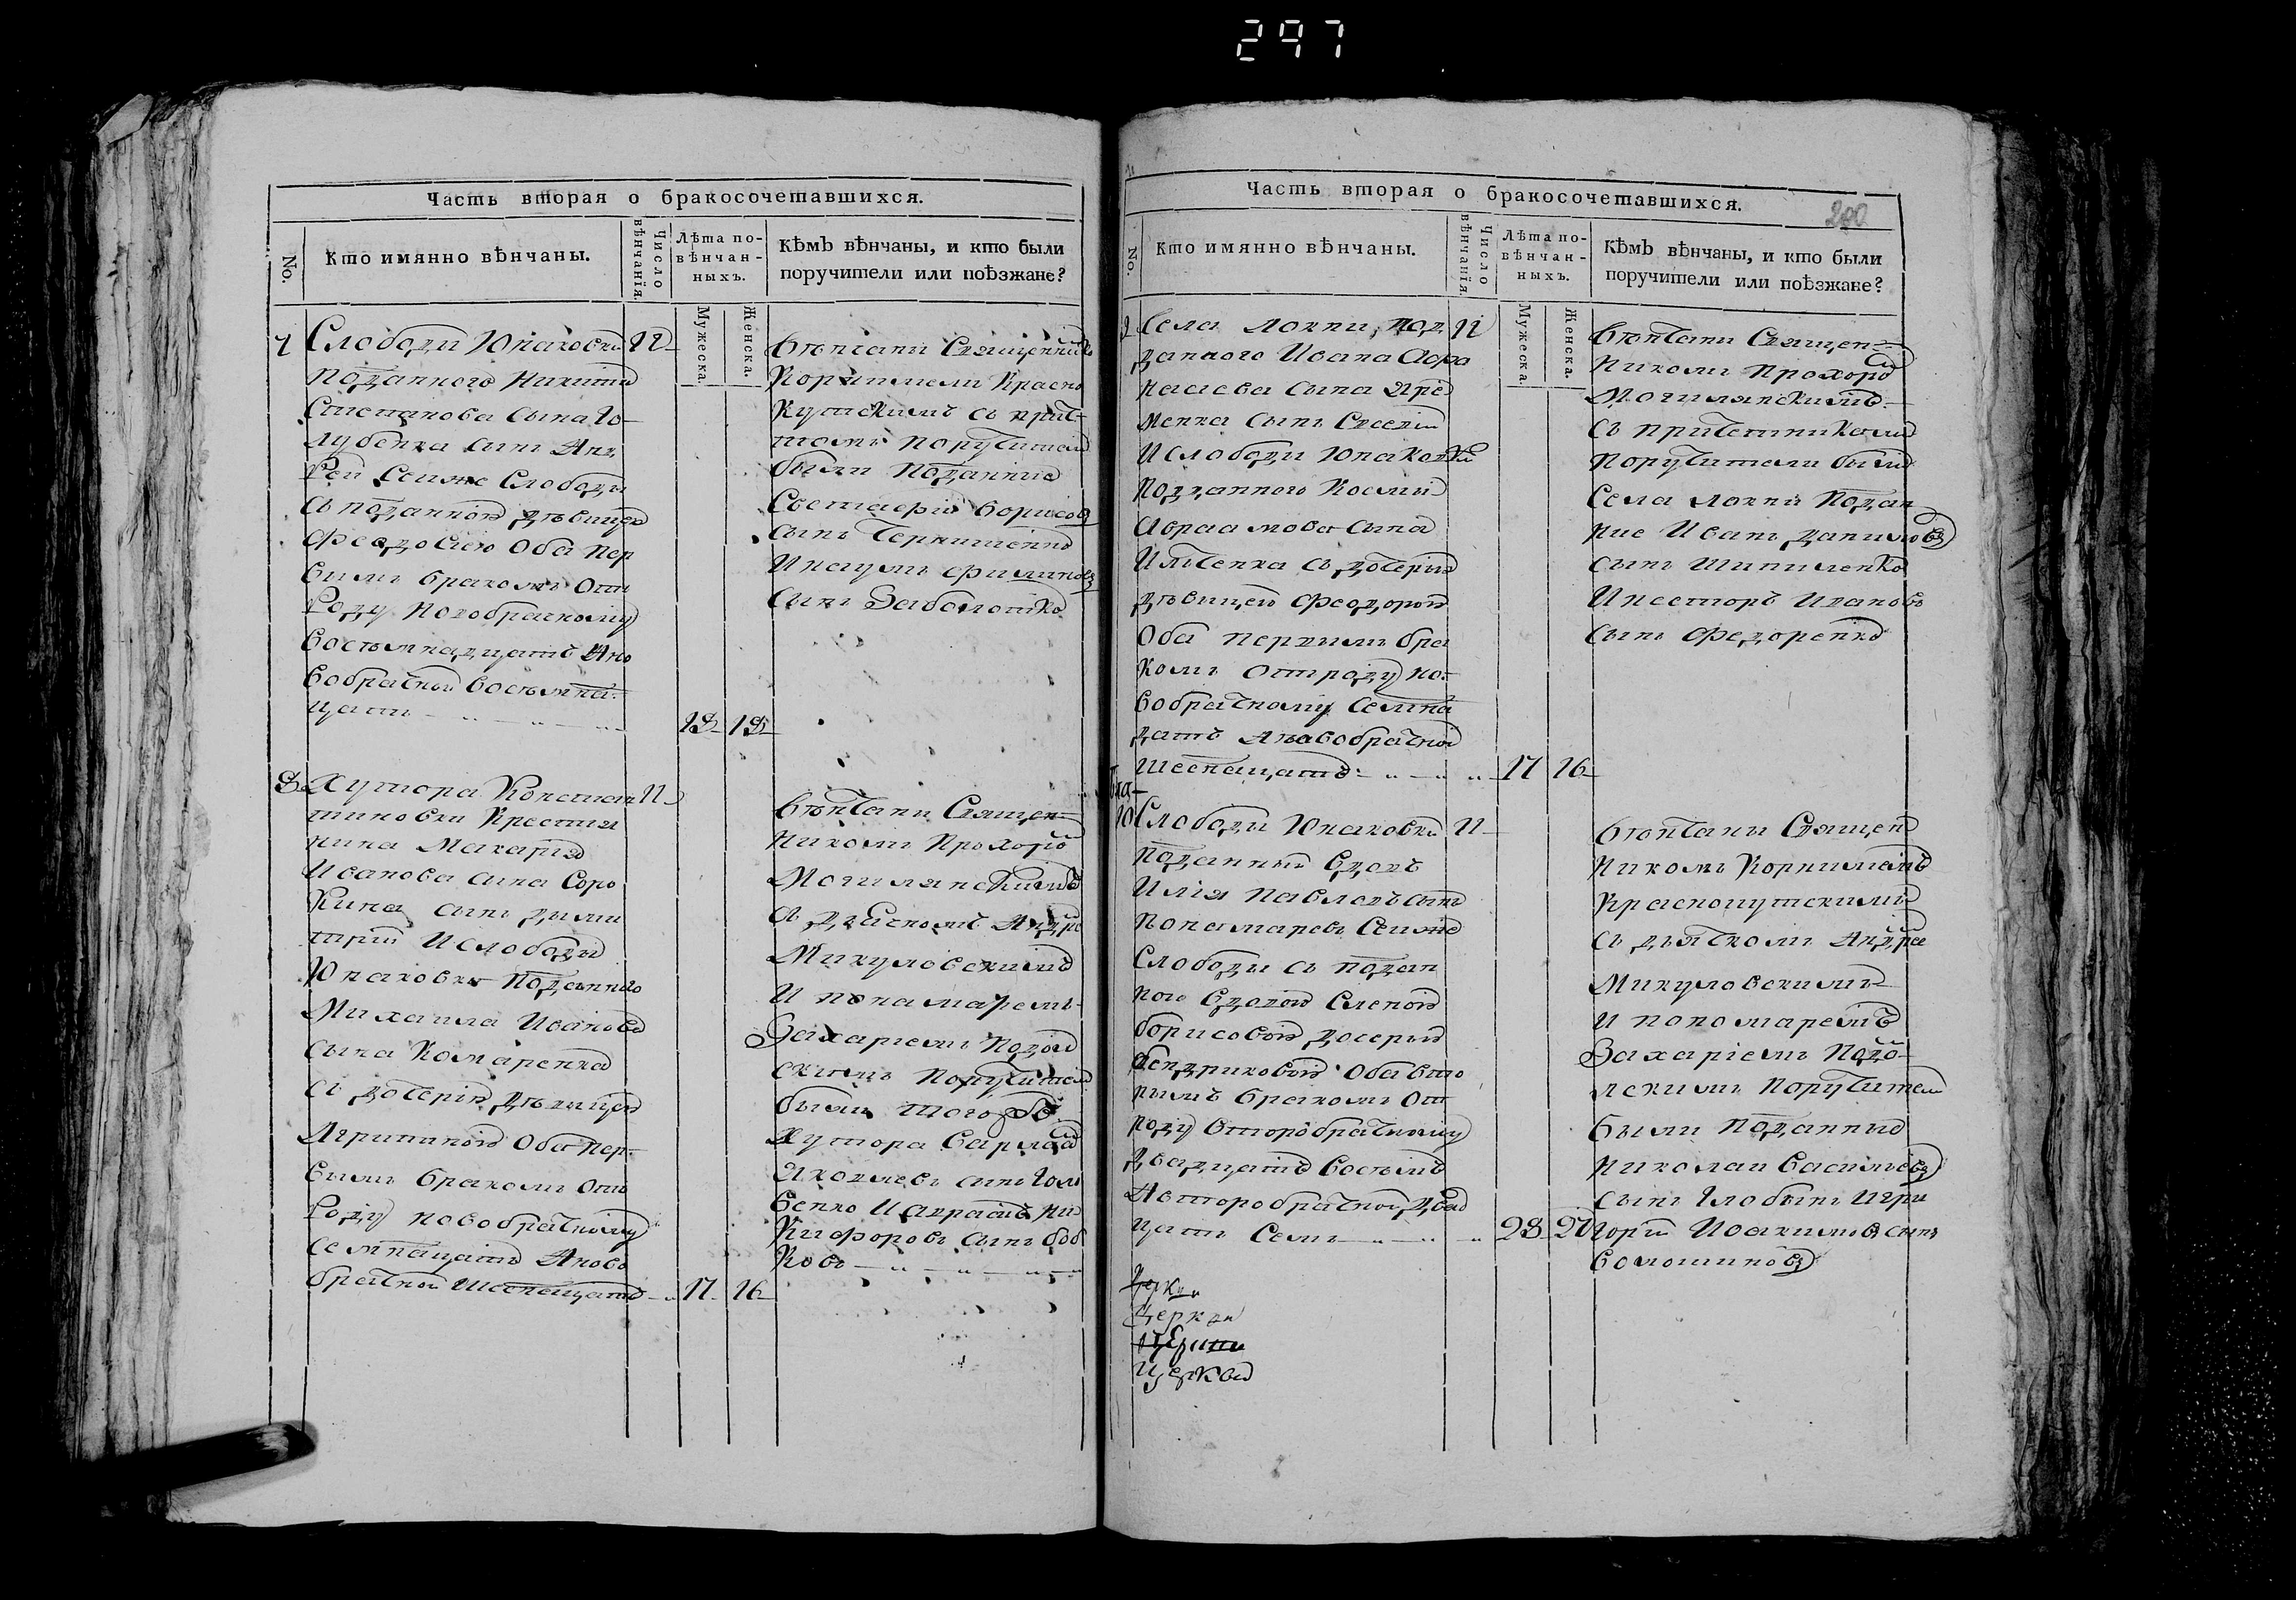 297
Часть вторая о бракосочетавшихся.
No.
Кто имянно вѣнчаны.
Число вѣнчанія.
Лѣта по-
вѣнчан-
ныхъ.
Мужеска.
Женска.
Кѣмъ вѣнчаны, и кто были
поручители или поѣзжане?
7 Слободи Юнаковки 11
поданного Никити
Степанова сына Го-
лубенка сынъ Анд
рей Сеиже Слободы
съ поданной дѣвицею
Феодосиею Оба пер
вимъ бракомъ Отъ
роду новобрачному
восѣмнадцать Ано
вобрачной восѣмна-
цать 18 18
Вѣнчани Священникъ
Корнилиемъ Красно
кутскимъ съ прич-
томъ поручители
были поданние
Евстафій Борисовъ
сынъ Чернишенко
Инаумъ Филиповъ
сынъ Заболотко
8 Хутора Констан 11
тиновки крестия
нина Макария
Иванова сина Соро
кина сынъ Дыми
трий Ислободы
Юнаковки поданного
Михаила Иванова
сына Комаренка
съ дочерию дѣвицею
Агрипиною Оба пер-
вимъ бракомъ отъ
роду новобрачному
семнацать Аново
брачной шеснацать 17 16
Вѣнчани Священ-
никомъ Прохоромъ
Могилянскимъ
съ дячкомъ Андре
Микуловскимъ
И понамаремъ
Захариемъ Подол
скимъ поручители
были того
хутора Варлам
Яковлевъ сынъ Голо
венко Иаврамъ Ни
кифоровъ сынъ Боб
ковъ
Часть вторая о бракосочетавшихся.
200
No.
Кто имянно вѣнчаны.
Число вѣнчанія.
Лѣта по-
вѣнчан-
ныхъ.
Мужеска.
Женска.
Кѣмъ вѣнчаны, и кто были
поручители или поѣзжане?
9 Села Локни, под 11
данного Ивана Афа
насиева сына Яре
менка сынъ Евсевии
Ислободы Юнаковки
подданного Космы
Авраамова сына
Илѣенка съ дочерью
дѣвицею Феодорою
Оба первимъ бра
комъ Отроду но-
вобрачному семна
дать Ановобрачной
шеснацать 17 16
Вѣнчани Священ-
никомъ Прохоромъ
Могилянскимъ
съ причетниками
поручители были
Села Локни подан
ние Иванъ Даниловъ
сынъ Шипиленко
Инесторъ Ивановъ
сынъ Федоренко
10 Слободы Юнаковки 11
поданный вдовъ
Илия Павловъ сынъ
Понамаревъ Сеиже
Слободы съ подан
ного вдовою Еленою
Борисовою дочерью
Бендриковою Оба вто
рымъ бракомъ От
роду второбрачному
двадцать восѣмъ
Авторобрачной двад
цать семь 28 27
Вѣнчани Священ
никомъ Корнилиемъ
Краснокутскимъ
съ дьячкомъ Андрее
Микуловскимъ
И пономаремъ
Захаріемъ Подо-
лскимъ поручители
были поданные
Николаи Василиевъ
сынъ Глобынъ Игри
горій Иоакимовъ сынъ
Волошиновъ
Церкви
Церкви